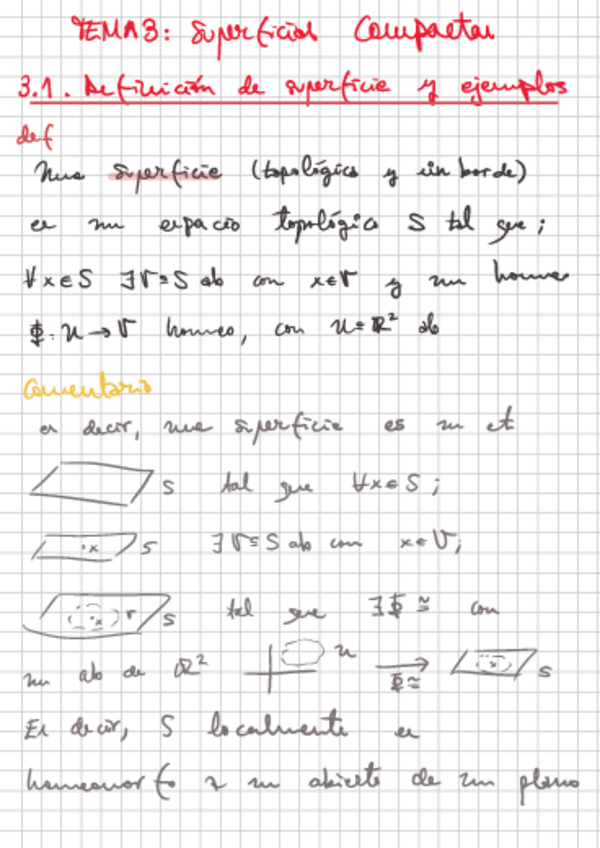 TEMA 3: Superficies Compactas
3.1. Definición de superficie y ejemplos
def
Una superficie (topológica y sin borde)
es un espacio topológico S tal que;
∀x∈S ∃V⊆S ab con x∈V y un homeo
Φ: U→V homeo, con U⊆ℝ² ab
Comentario
es decir, una superficie es un et
S tal que ∀x∈S;
·x S ∃V⊆S ab con x∈V;
·x V S tal que ∃Φ ≅ con
un ab de ℝ² U → Φ≅ x S
Es decir, S localmente es
homeomorfo a un abierto de un plano